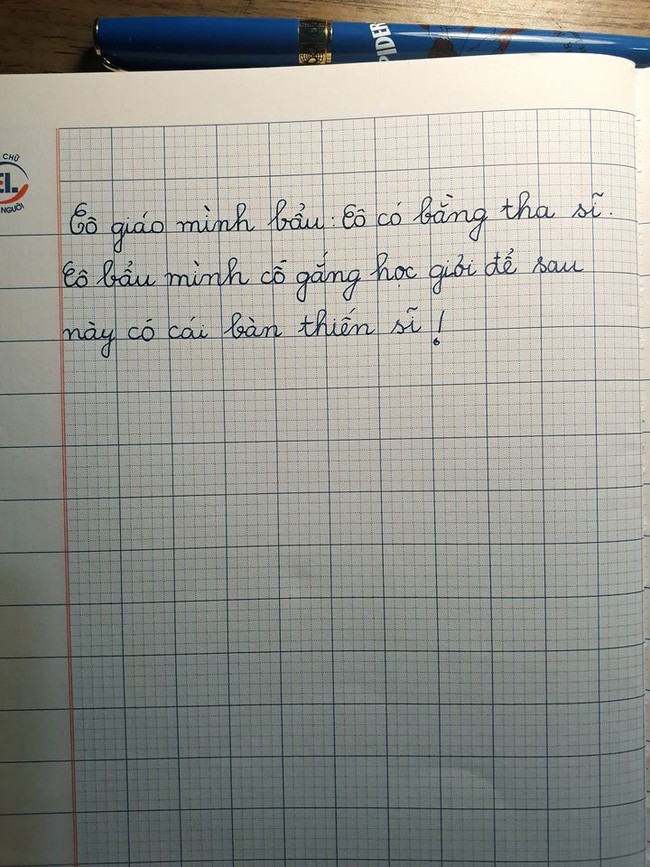 PIDER
CHỮ
EL
NGƯỜI
Cô giáo mình bẩu: Cô có bằng tha sĩ.
Cô bẩu mình cố gắng học giỏi để sau
này có cái bàn thiến sĩ!